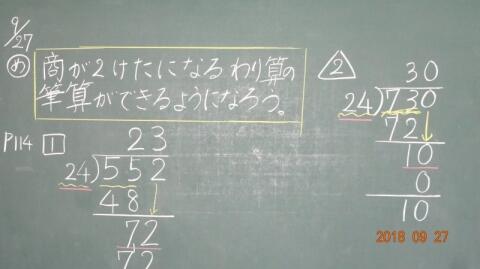 9/27
め 商が2けたになるわり算の
筆算ができるようになろう。
P114 1
23
24)552
48
72
72
2
30
24)730
72
10
0
10
2018 09 27